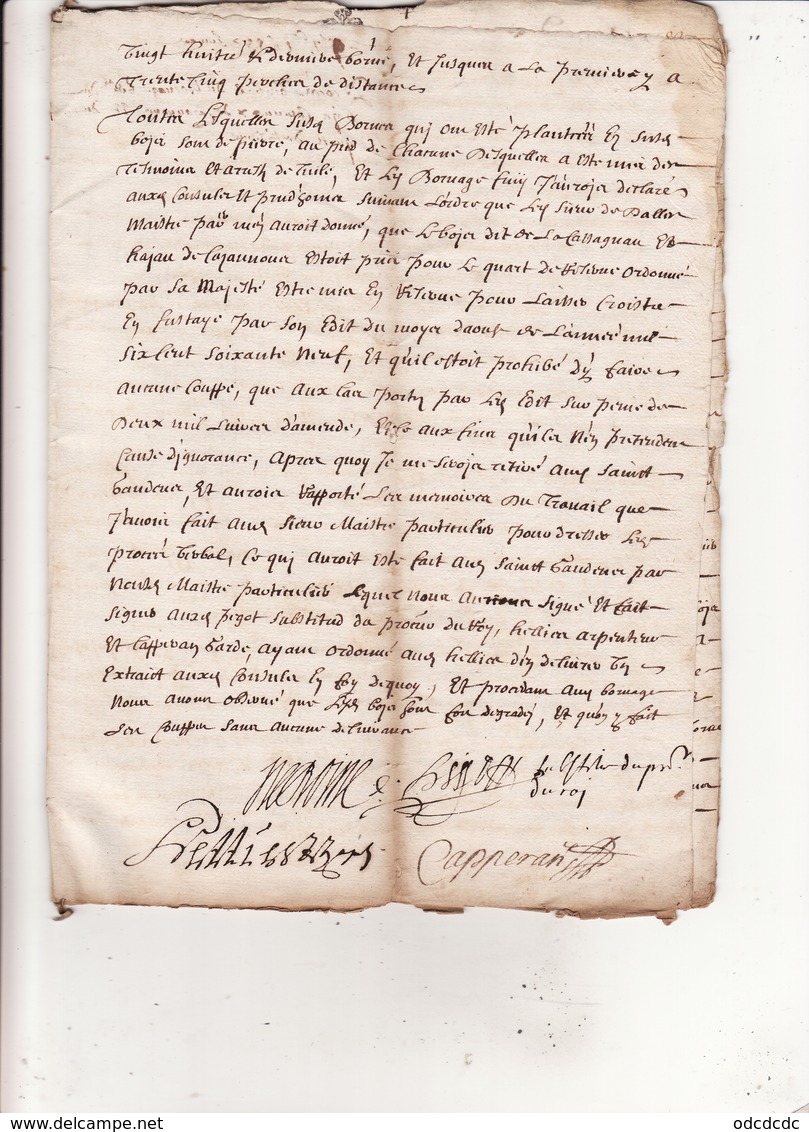 vingt huitie & derniere borne, et jusques a la premiere y a
trente cinq perches de distance
Toutes lesquelles susd bornes qui ont esté plantées en susd
bois sont de pierre, au pied de chacune desquelles a este mis des
tesmoins et arash de tuile, et led bornage finy J'aurois declaré
auxd consuls et prud'homes suivant l'ordre que led sieur de
Maistre par men auroit donné, que le bois dit de la Cassagnau et
hajau de Cazaunoua estoit pris pour le quart de reserve ordonné
par sa Majesté estre mis en reserve pour laisser croistre
en fustaye par son edit du moys daoust de l'année mil
six cent soixante neuf, et qu'il estoit prohibé d'y faire
aucune couppe, que aux cas portés par led edit sur peine de
deux mil livres d'amende, et ce aux fins qu'ils n'en pretendent
cause d'ignorance, apres quoy je me serois retiré aud saint
Gaudens, et aurois rapporté les memoires du travail que
J'avois fait aud sieur Maistre particulier pour dresser led
procès verbal, ce qui auroit esté fait aud saint Gaudens par
Maistre particulier lequel nous aurions signé et fait
signer auxd pegot substitud du procur du Roy, hellies arpenteur
et Capperan garde, ayant ordonné aud hellies d'en delivrer un
extrait auxd consuls en foy dequoy, et procedant aud bornage
nous avons observé que lesd bois sont fort degradés, et qu'on y fait
les couppes sans aucune delivrance
du roi
Capperan
odcdcdc